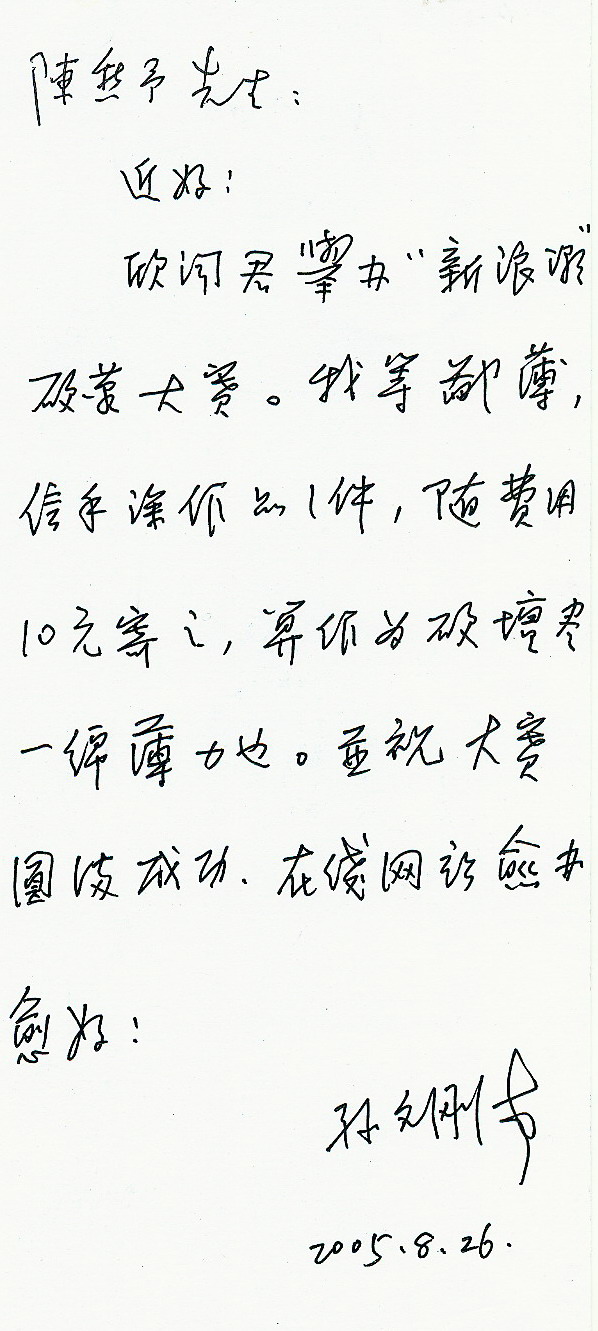 陳愁予先生：
近好！
欣闻君舉办“新浪潮”
硬裘大賽。我等鄙薄，
信手涂作品1件，随費用
10元寄之，算作为硬壇尽
一綿薄力也。並祝大賽
圓满成功．在线网站愈办
愈好！
孙文刚书
2005.8.26.